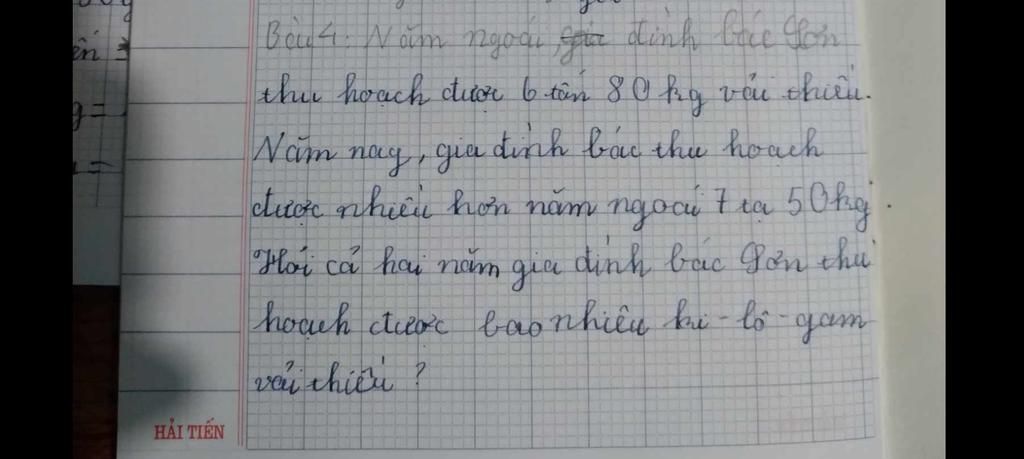 Bài 4: Năm ngoái, gia đình bác Sơn
thu hoạch được 6 tấn 80 kg vải thiều.
Năm nay, gia đình bác thu hoạch
được nhiều hơn năm ngoái 7 tạ 50 kg.
Hỏi cả hai năm gia đình bác Sơn thu
hoạch được bao nhiêu ki-lô-gam
vải thiều?
HẢI TIẾN